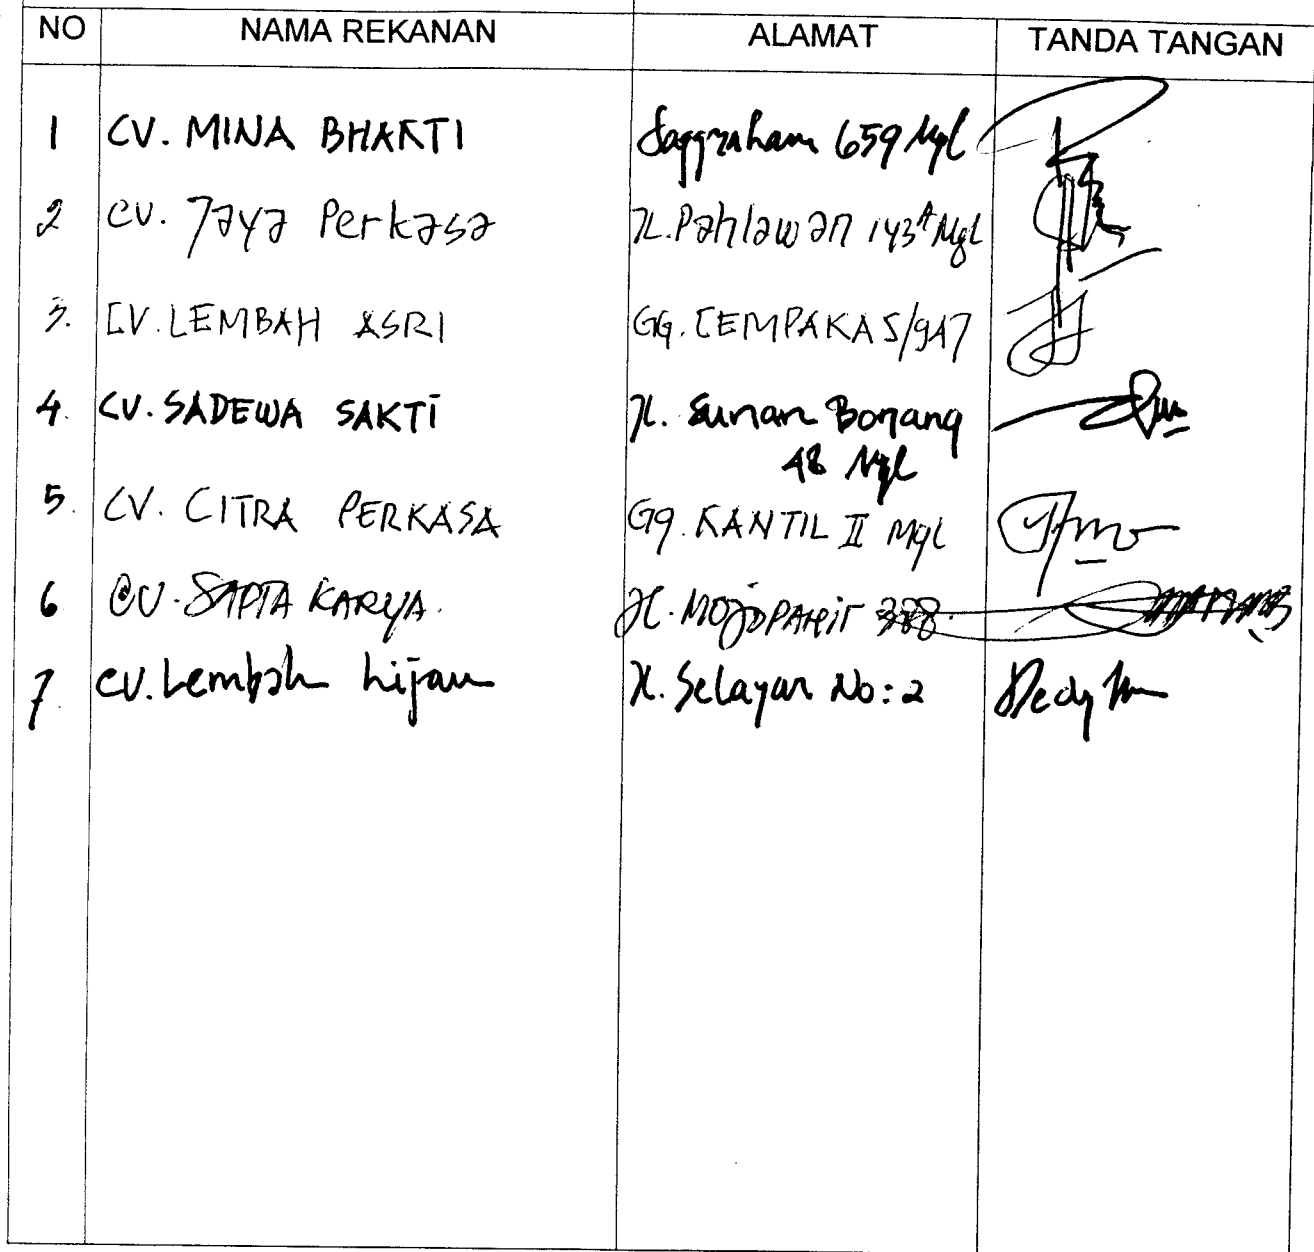 NO NAMA REKANAN ALAMAT TANDA TANGAN
1 CV. MINA BHAKTI Sanggrahan 659 Mgl
2 CV. Jaya Perkasa Jl. Pahlawan 143A Mgl
3. CV. LEMBAH ASRI GG. CEMPAKA 5/9A7
4. CV. SADEWA SAKTI Jl. Sunan Bonang
48 Mgl
5. CV. CITRA PERKASA Gg. KANTIL II Mgl
6 CV. SAPTA KARYA. Jl. MOJOPAHIT 388.
7. CV. Lembah hijau Jl. Selayar No: 2